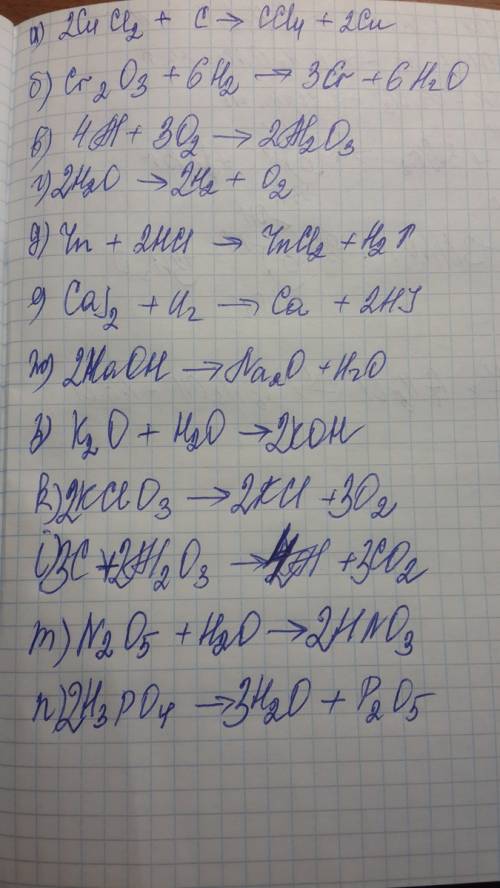 а) 2CuCl2 + C → CCl4 + 2Cu
б) Cr2O3 + 6H2 → 3Cr + 6H2O
в) 4Al + 3O2 → 2Al2O3
г) 2H2O → 2H2 + O2
д) Zn + 2HCl → ZnCl2 + H2↑
е) CaJ2 + H2 → Ca + 2HJ
ж) 2NaOH → Na2O + H2O
з) K2O + H2O → 2KOH
k) 2KClO3 → 2KCl + 3O2
i) 3C + 2Al2O3 → 4Al + 3CO2
m) N2O5 + H2O → 2HNO3
n) 2H3PO4 → 3H2O + P2O5